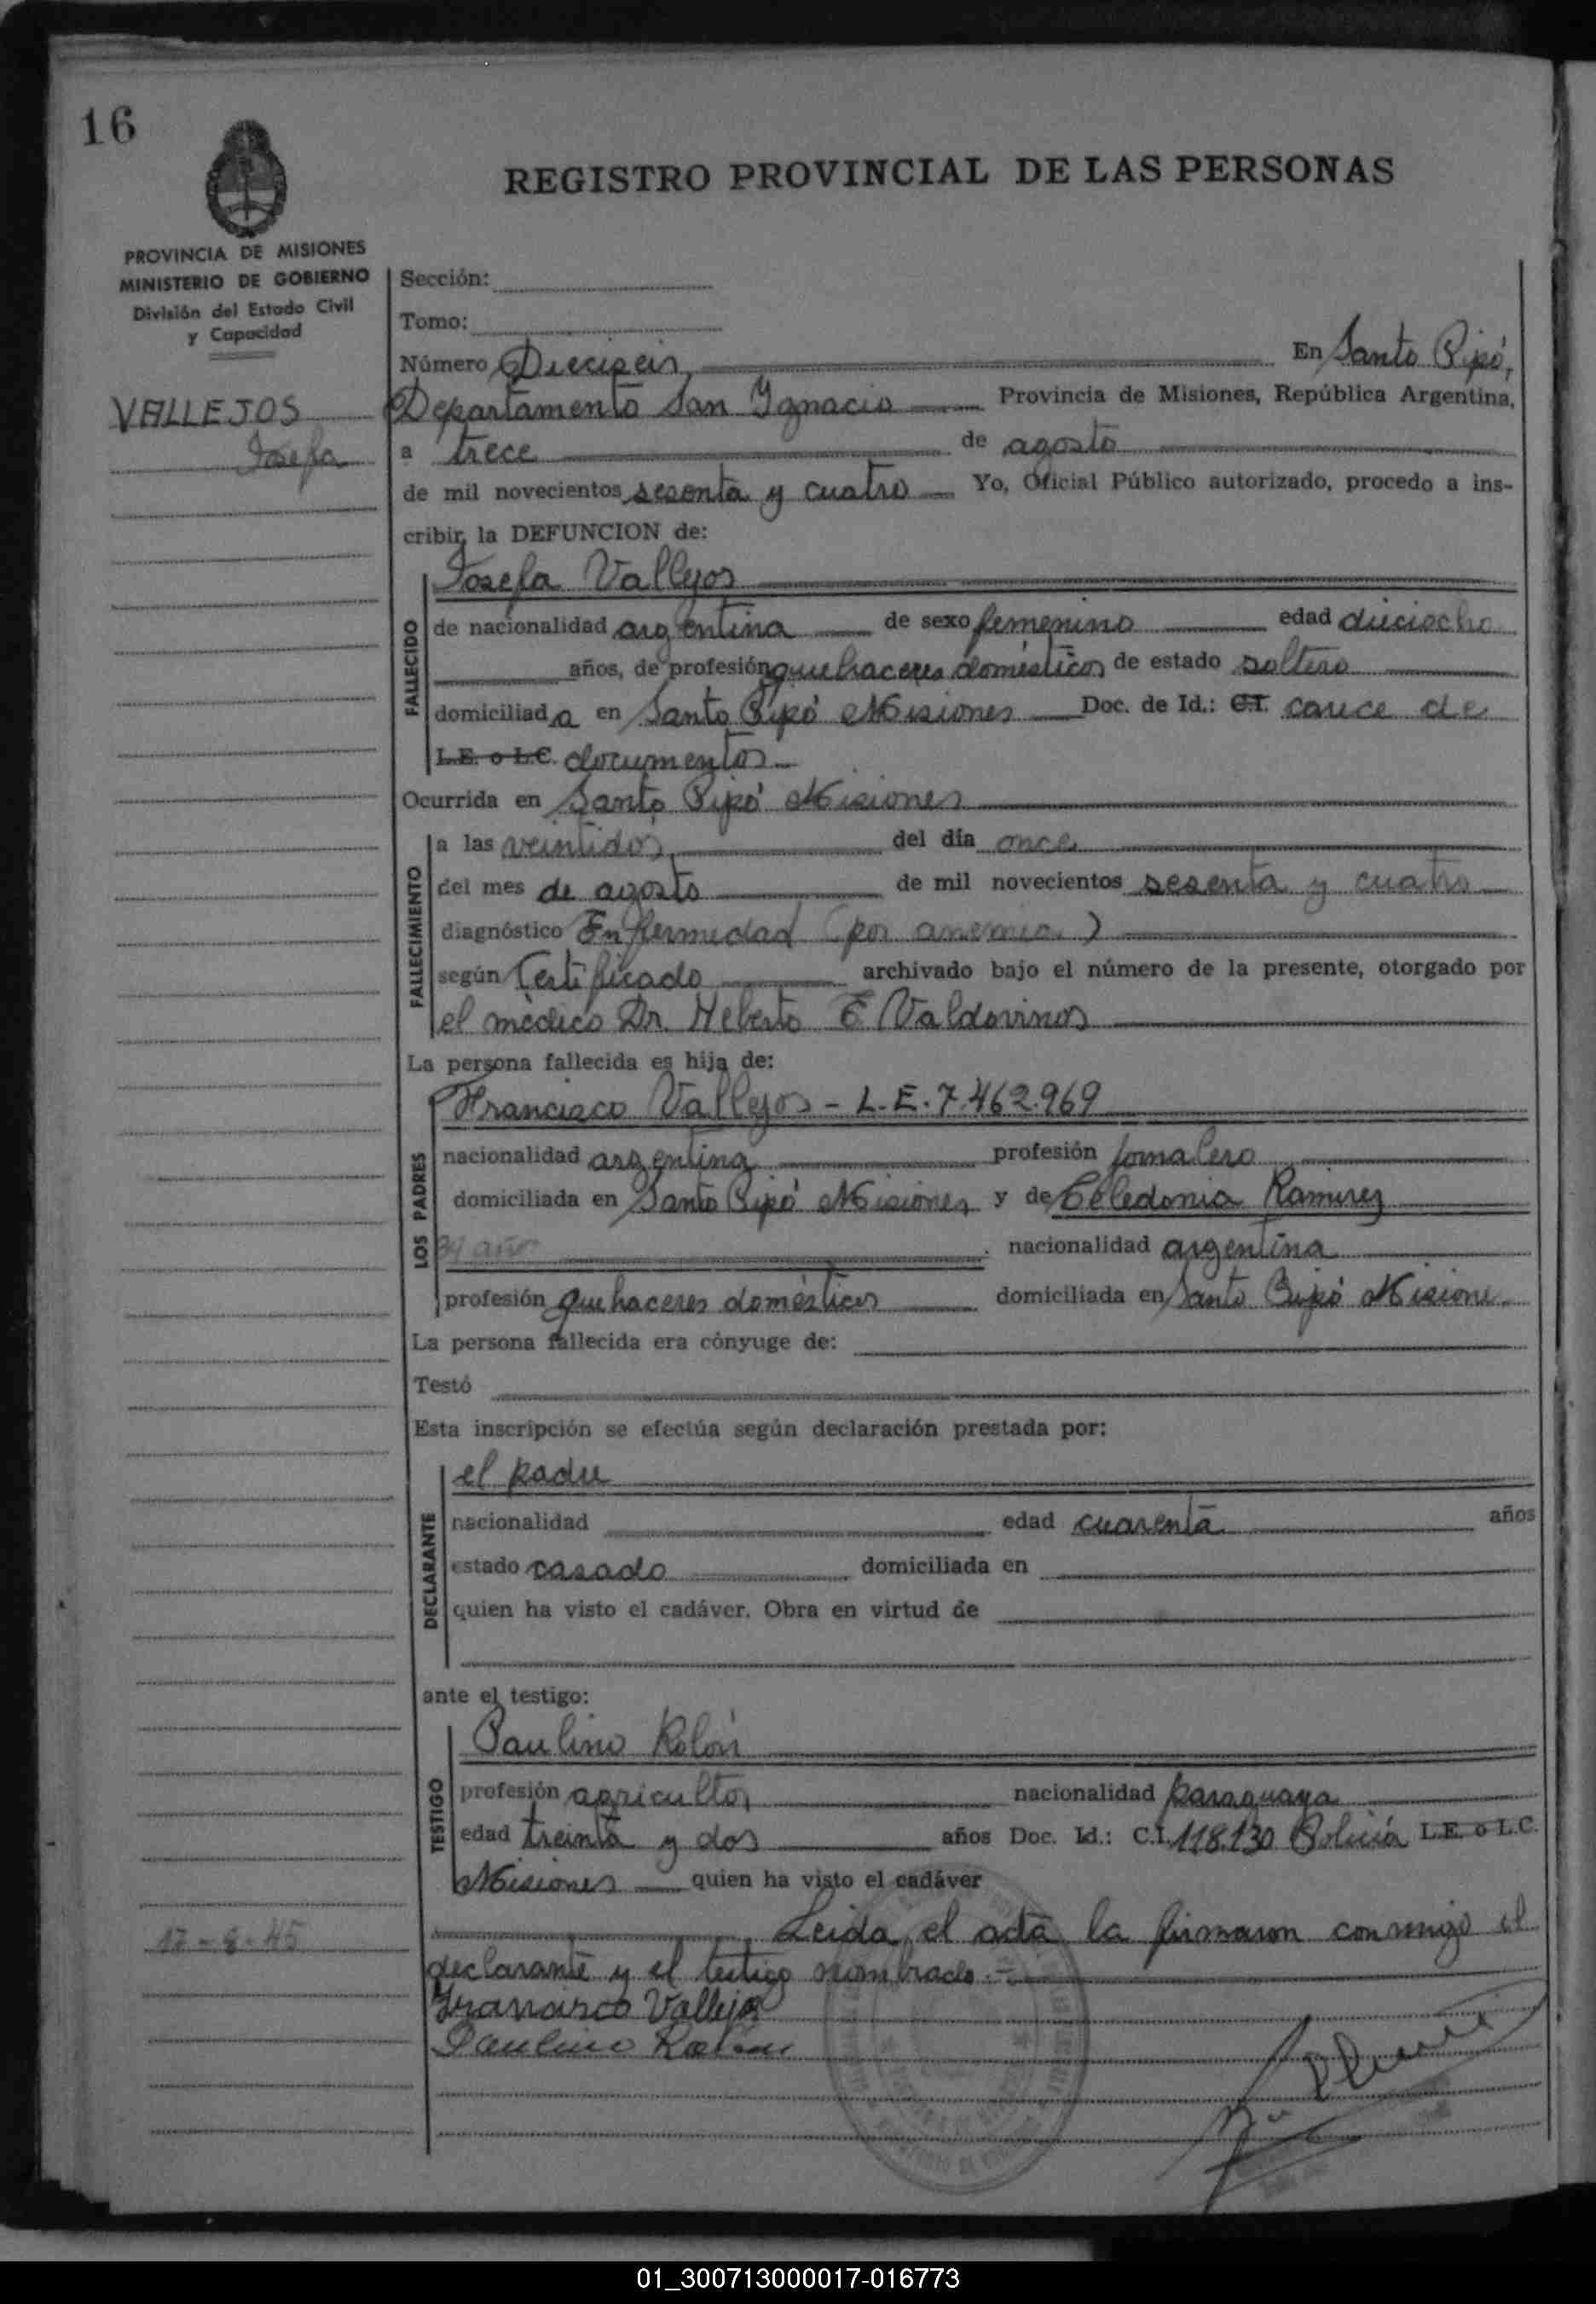 16
REGISTRO PROVINCIAL DE LAS PERSONAS
PROVINCIA DE MISIONES
MINISTERIO DE GOBIERNO
División del Estado Civil
y Capacidad
VALLEJOS
Josefa
Sección:
Tomo:
Número Dieciseis En Santo Pipó,
Departamento San Ignacio Provincia de Misiones, República Argentina,
a trece de agosto
de mil novecientos sesenta y cuatro Yo, Oficial Público autorizado, procedo a ins-
cribir la DEFUNCION de:
FALLECIDO
Josefa Vallejos
de nacionalidad argentina de sexo femenino edad dieciocho
años, de profesión quehaceres domésticos de estado soltero
domiciliada en Santo Pipó Misiones Doc. de Id.: C.I. carece de
L.E. o L.C. documentos
Ocurrida en Santo Pipó Misiones
FALLECIMIENTO
a las veintidos del día once
del mes de agosto de mil novecientos sesenta y cuatro
diagnóstico Enfermedad (por anemia)
según Certificado archivado bajo el número de la presente, otorgado por
el médico Dr. Heberto E Valdovinos
La persona fallecida es hija de:
LOS PADRES
Francisco Vallejos - L.E. 7.462.969
nacionalidad argentina profesión jornalero
domiciliada en Santo Pipó Misiones y de Celedonia Ramirez
34 años nacionalidad argentina
profesión quehaceres domésticos domiciliada en Santo Pipó Misiones
La persona fallecida era cónyuge de:
Testó
Esta inscripción se efectúa según declaración prestada por:
DECLARANTE
el padre
nacionalidad edad cuarenta años
estado casado domiciliada en
quien ha visto el cadáver. Obra en virtud de
ante el testigo:
TESTIGO
Paulino Rolón
profesión agricultor nacionalidad paraguaya
edad treinta y dos años Doc. Id.: C.I. 118.130 Policía L.E. o L.C.
Misiones quien ha visto el cadáver
Leida el acta la firmaron conmigo el
declarante y el testigo nombrado.-
17-8-45
Francisco Vallejo
Paulino Rolon
01_300713000017-016773